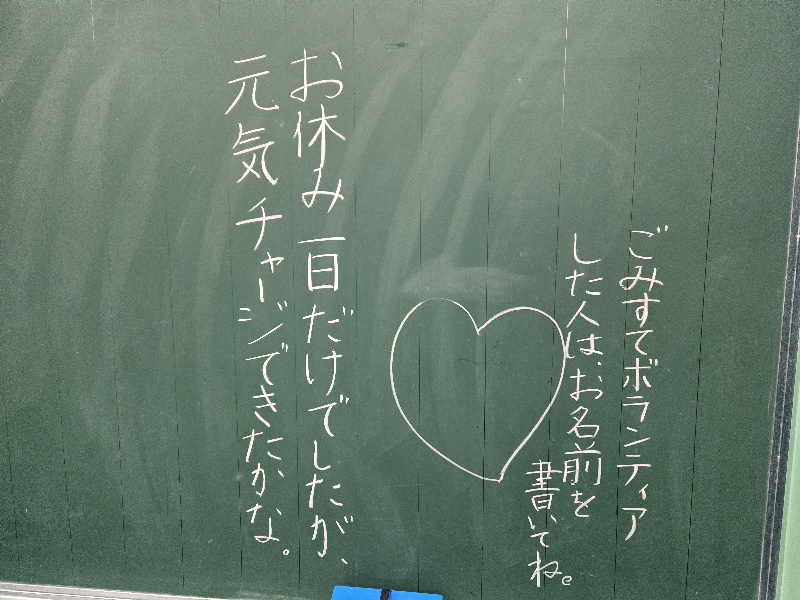 ごみすてボランティア
した人は、お名前を
書いてね。
お休み一日だけでしたが、
元気チャージできたかな。